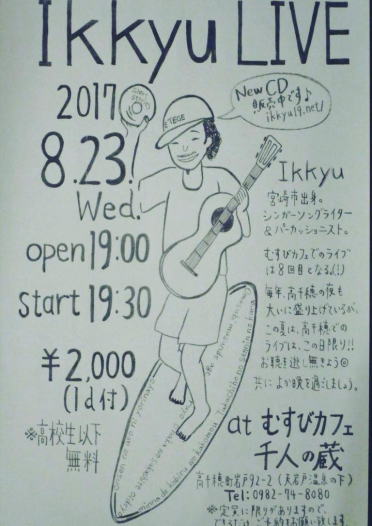 Ikkyu LIVE
2017
8.23.
Wed.
open 19:00
start 19:30
¥2,000
(1d付)
※高校生以下
無料
ETEGE
New CD
販売中です♪
ikkyu19.net/
Ikkyu
宮崎市出身。
シンガーソングライター
&パーカッショニスト。
むすびカフェでのライブ
は8回目となる(!)
毎年、高千穂の夜も
大いに盛り上げているが、
この夏は、高千穂での
ライブは、この日限り!!
お聴き逃し無きよう
共に よか晩を過ごしましょう。
at むすびカフェ
千人の蔵
高千穂町岩戸92-2 (天岩戸温泉の下)
Tel: 0982-74-8080
※定員に限りがありますので、
できるだけご予約お願い致します